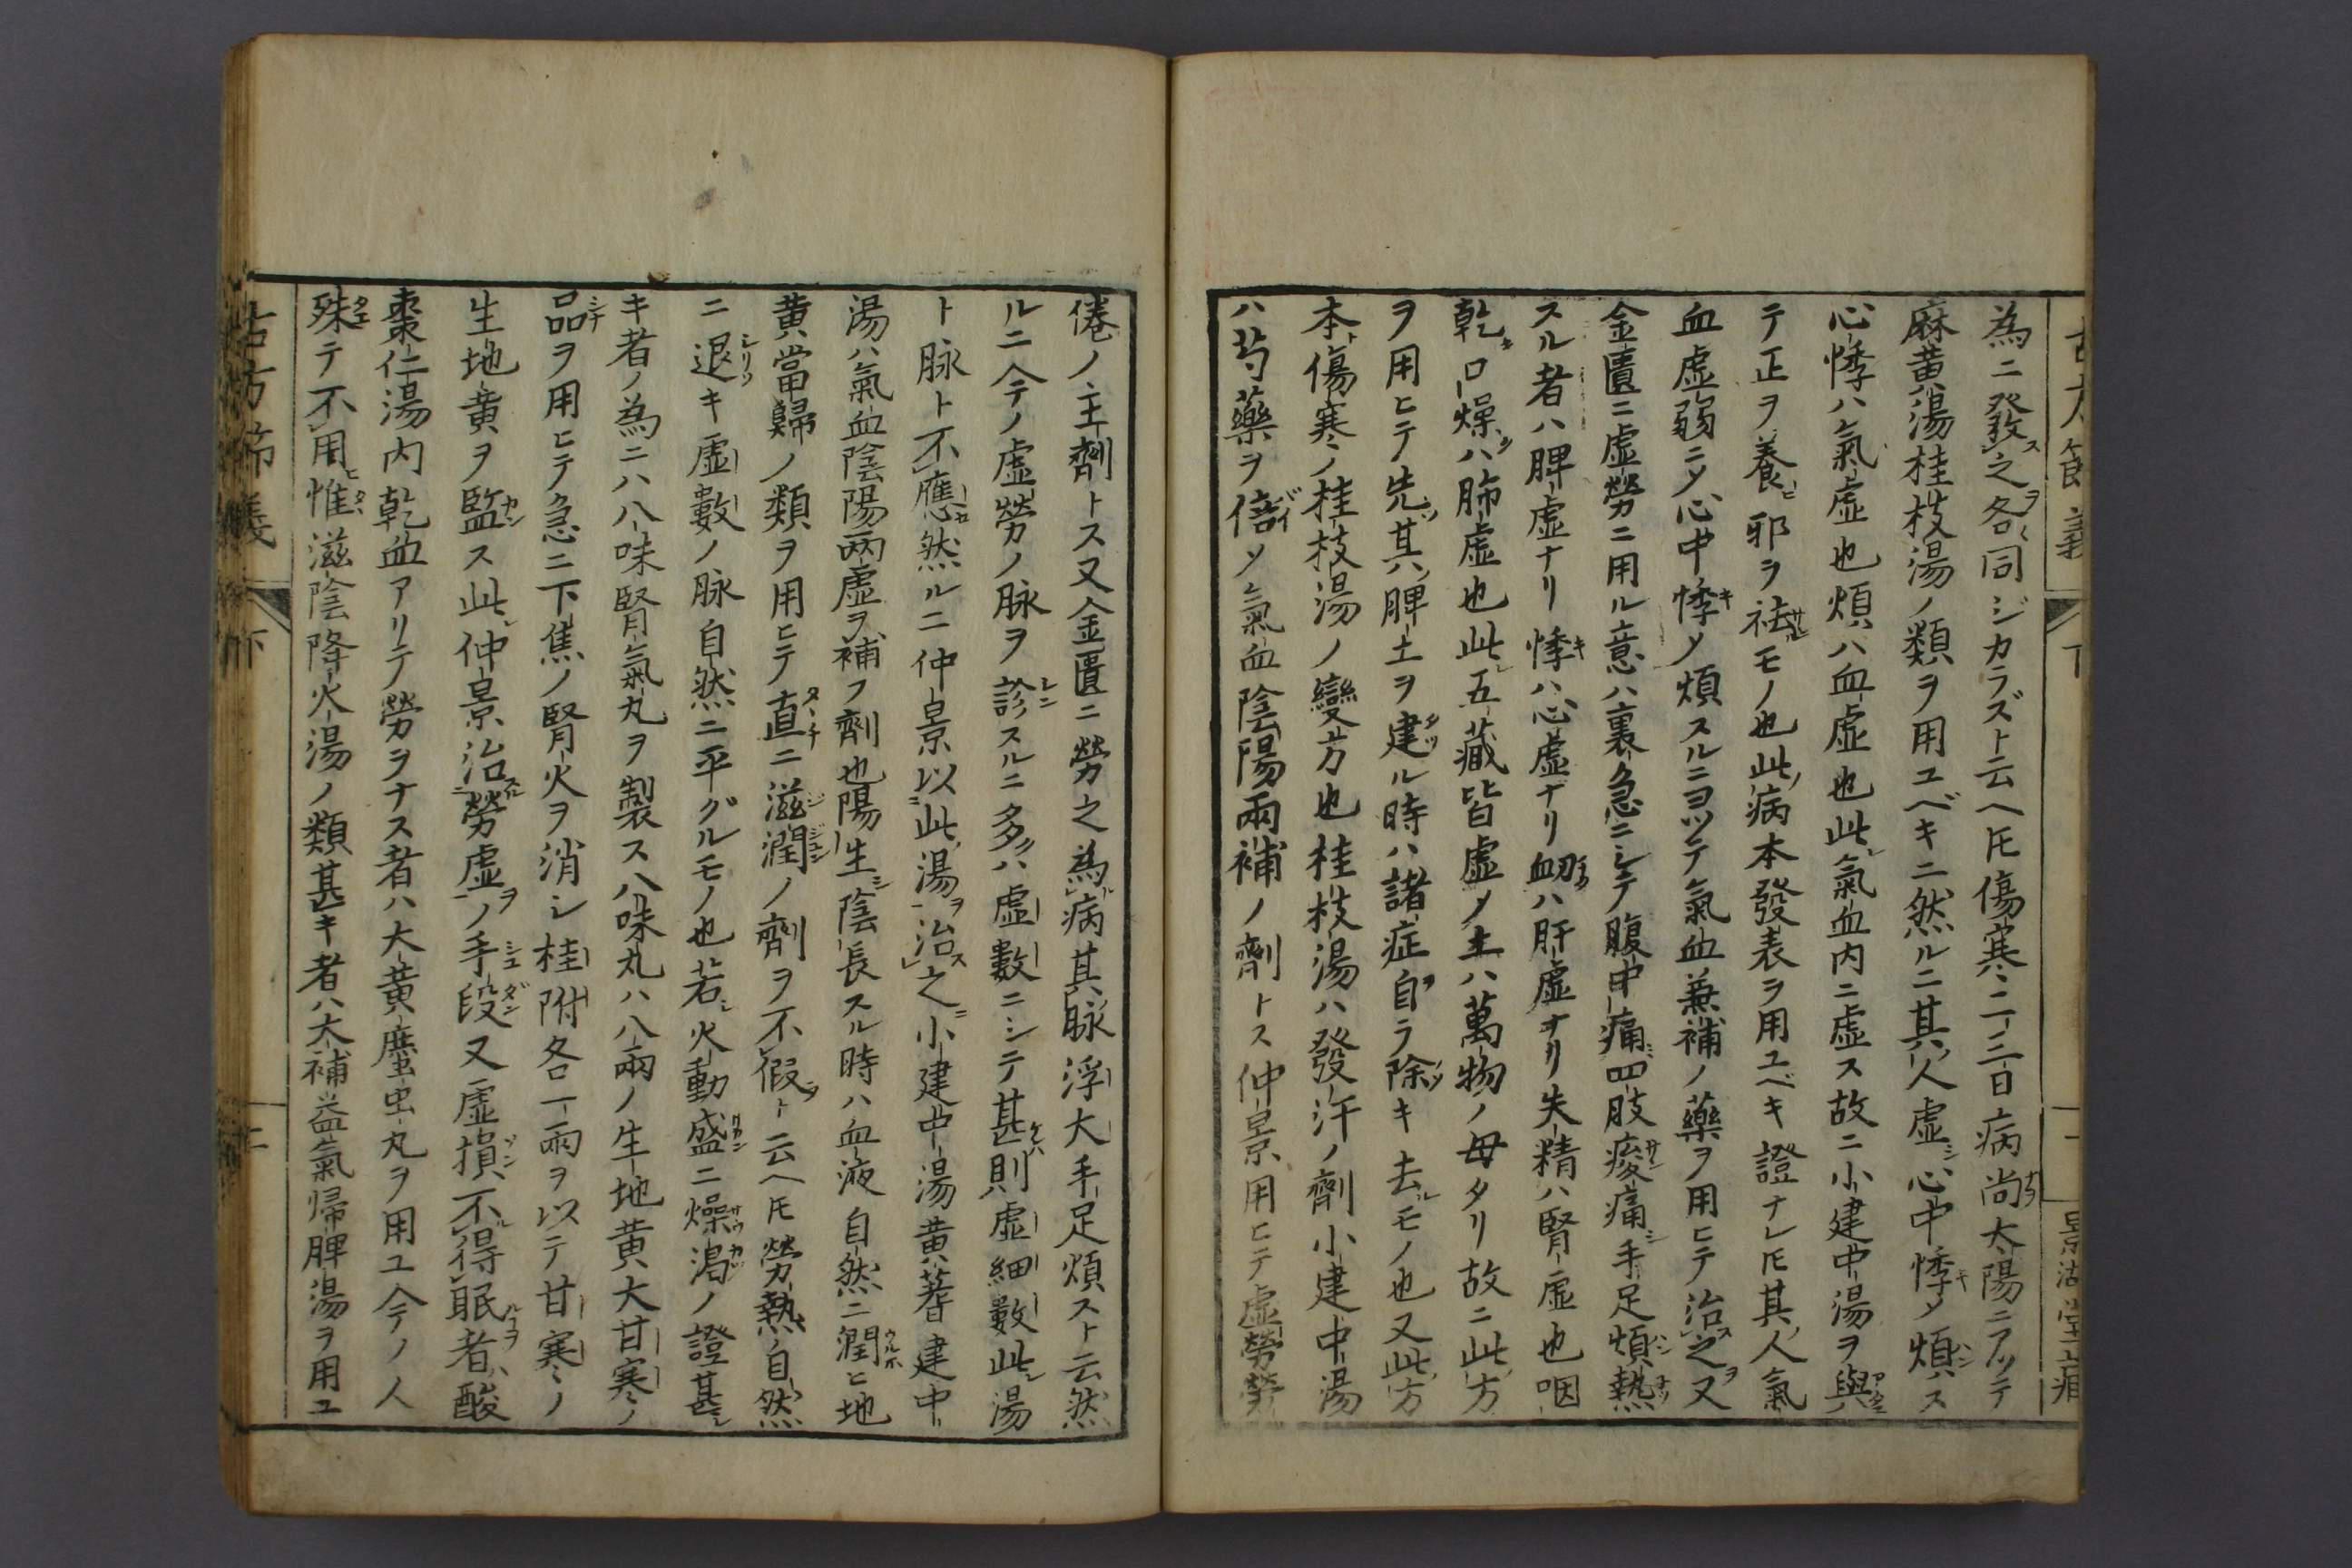 為ニ發之各同ジカラズト云ヘ𪜈傷寒二三日病尚太陽ニアッテ
麻黄湯桂枝湯ノ類ヲ用ユベキニ然ルニ其人虚心中悸〆煩ス
心悸ハ氣虚也煩ハ血虚也此氣血内ニ虚ス故ニ小建中湯ヲ與
テ正ヲ養邪ヲ祛モノ也此病本發表ヲ用ユベキ證ナレ𪜈其人氣
血虚弱ニ〆心中悸〆煩スルニヨツテ氣血兼補ノ藥ヲ用ヒテ治之又
金匱ニ虚勞ニ用ル意ハ裏急ニシテ腹中痛四肢痠痛手足煩熱
スル者ハ脾虚ナリ悸ハ心虚ナリ衂ハ肝虚ナリ失精ハ腎虚也咽
乾口燥ハ肺虚也此五藏皆虚〆土ハ萬物ノ母タリ故ニ此方
ヲ用ヒテ先其脾土ヲ建ル時ハ諸症自ラ除キ去モノ也又此方
本傷寒ノ桂枝湯ノ變方也桂枝湯ハ發汗ノ劑小建中湯
ハ芍藥ヲ倍〆氣血陰陽兩補ノ劑トス仲景用ヒテ虚勞勞
倦ノ主劑トス又金匱ニ勞之為病其脉浮大手足煩スト云然
ルニ今テノ虚勞ノ脉ヲ診スルニ多ハ虚數ニシテ甚則虚細數此湯
ト脉ト不應然ルニ仲景以此湯治之小建中湯黄蓍建中
湯ハ氣血陰陽兩虚ヲ補フ劑也陽生陰長スル時ハ血液自然ニ潤ヒ地
黄當歸ノ類ヲ用ヒテ直ニ滋潤ノ劑ヲ不假ト云ヘ𪜈勞熱自然
ニ退キ虚數ノ脉自然ニ平グルモノ也若火動盛ニ燥渇ノ證甚
キ者ノ為ニハ八味腎氣丸ヲ製ス八味丸ハ八兩ノ生地黄大甘寒ノ
品ヲ用ヒテ急ニ下焦ノ腎火ヲ消シ桂附各一兩ヲ以テ甘寒ノ
生地黄ヲ監ス此仲景治勞虚ノ手段又虚損不得眠者ハ酸
棗仁湯内乾血アリテ勞ヲナス者ハ大黄䗪虫丸ヲ用ユ今テノ人
殊テ不用惟滋陰降火湯ノ類甚キ者ハ大補益氣帰脾湯ヲ用ユ
古方節義 下